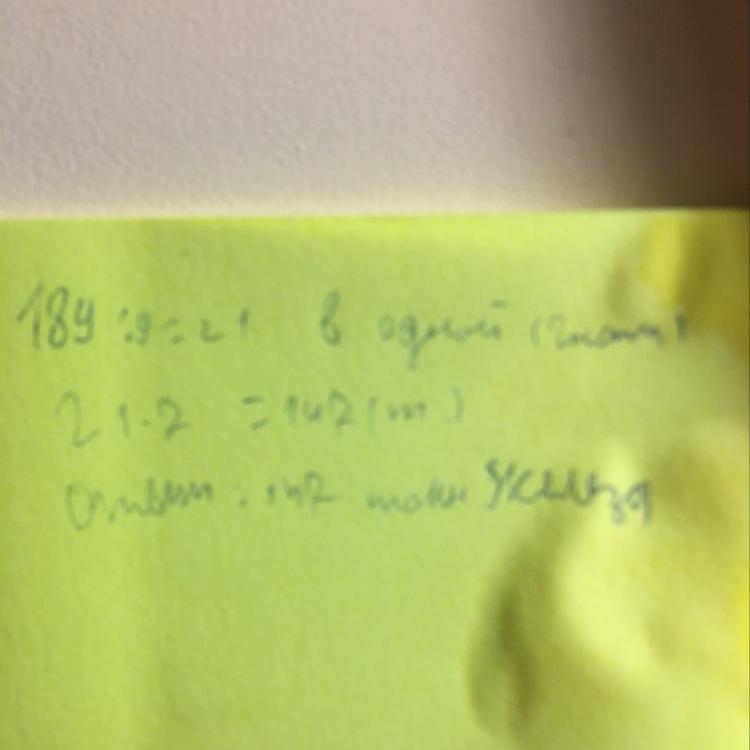 189 : 9 = 21 в одной
21 · 7 = 147 (т.)
Ответ: 147 тонн железа